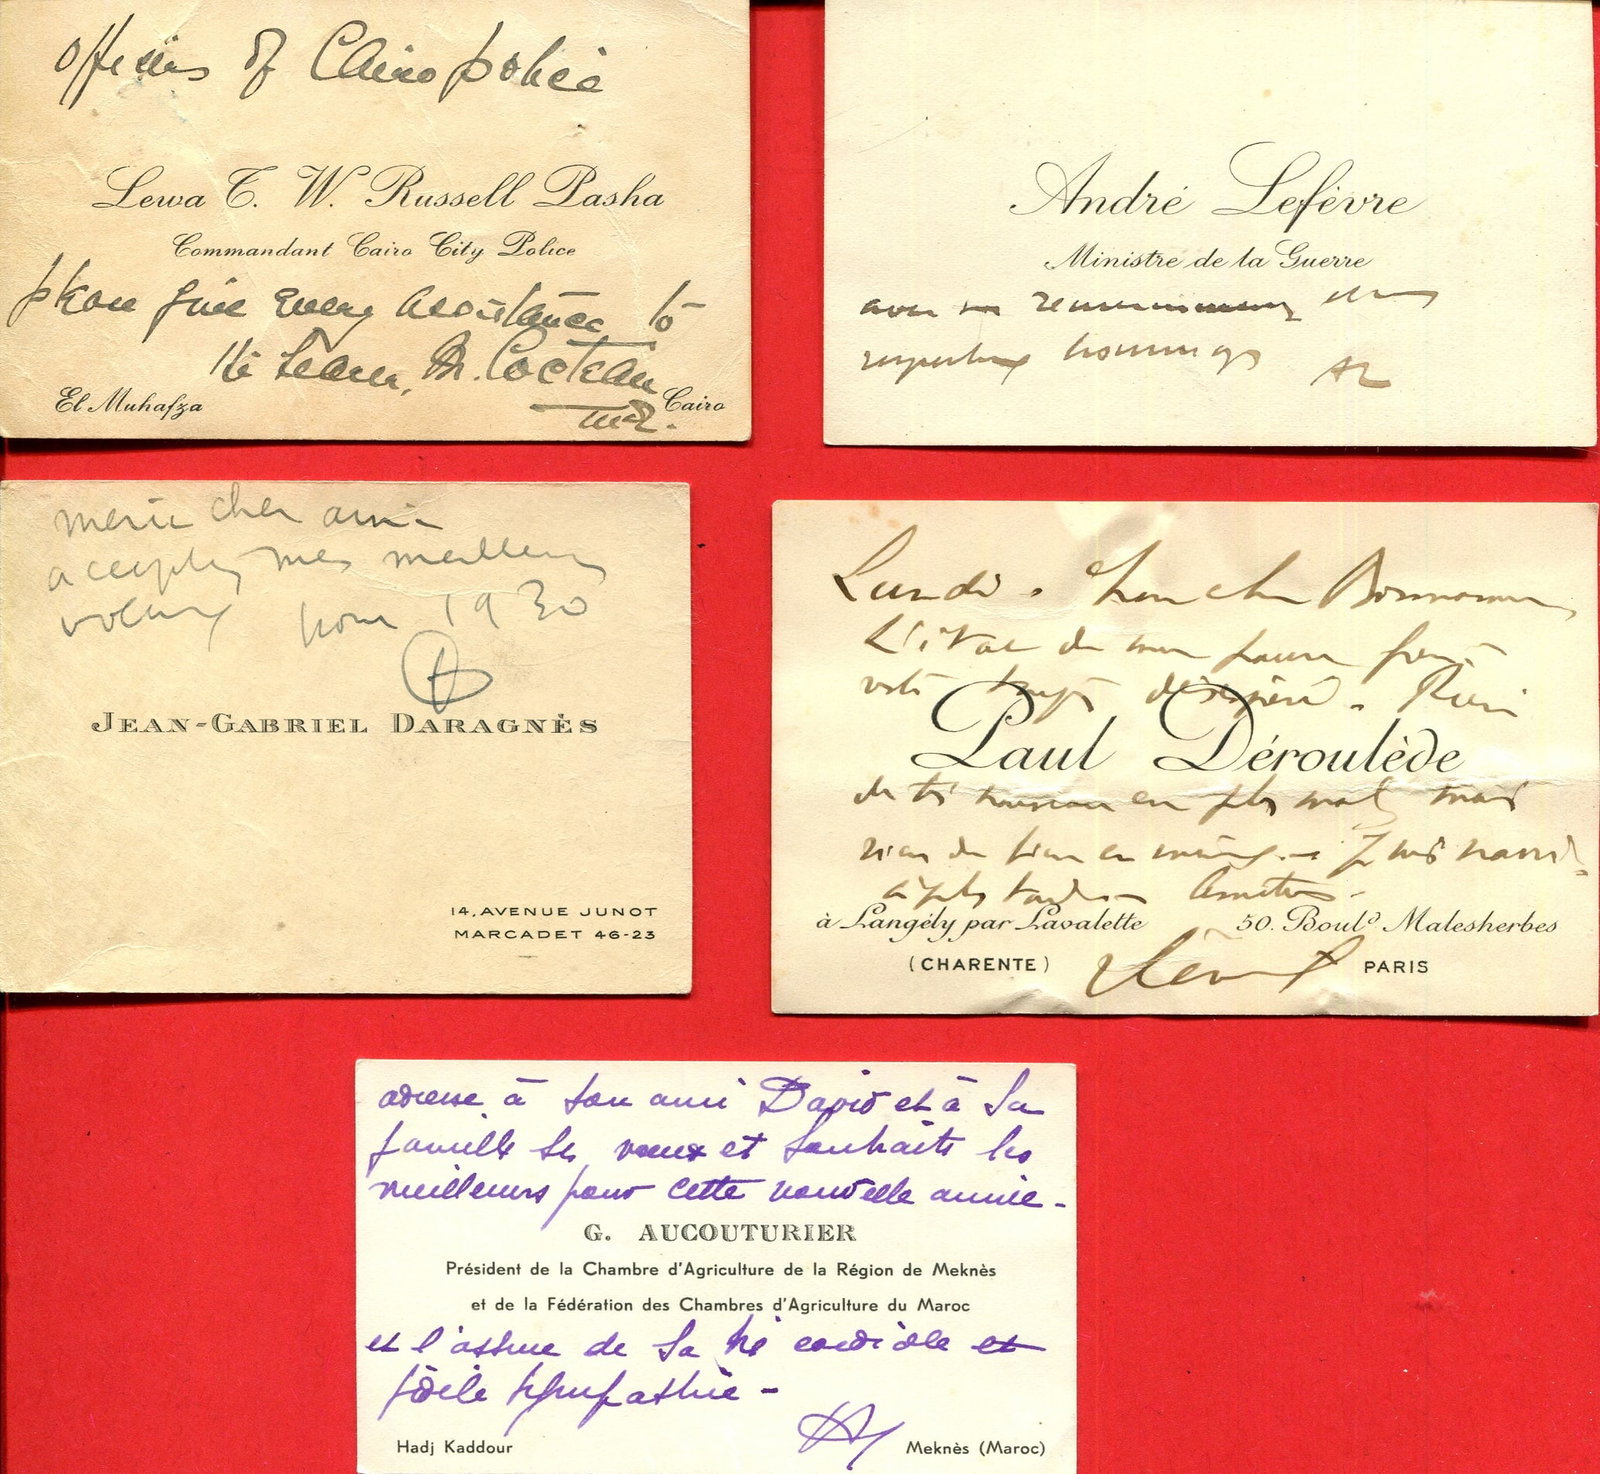 Officers of Cairo police
Lewa T. W. Russell Pasha
Commandant Cairo City Police
please give every assistance to
the bearer, M. Cocteau
El Muhafza
Cairo
TWR.
André Lefèvre
Ministre de la Guerre
avec
hommages
AL
merci cher ami
acceptez mes meilleurs
voeux pour 1930
JEAN-GABRIEL DARAGNÈS
14, AVENUE JUNOT
MARCADET 46-23
Lundi. Mon cher
L'état de mon pauvre
est toujours désespéré. Rien
Paul Déroulède
de très nouveau en plus mal mais
rien de bien en mieux. Je suis navré.
à plus tard Amitiés.
à Langély par Lavalette
50. Bould Malesherbes
(CHARENTE)
PARIS
adresse à son ami David et à sa
famille ses vœux et souhaits les
meilleurs pour cette nouvelle année -
G. AUCOUTURIER
Président de la Chambre d'Agriculture de la Région de Meknès
et de la Fédération des Chambres d'Agriculture du Maroc
et l'assure de sa très cordiale et
fidèle sympathie -
Hadj Kaddour
Meknès (Maroc)